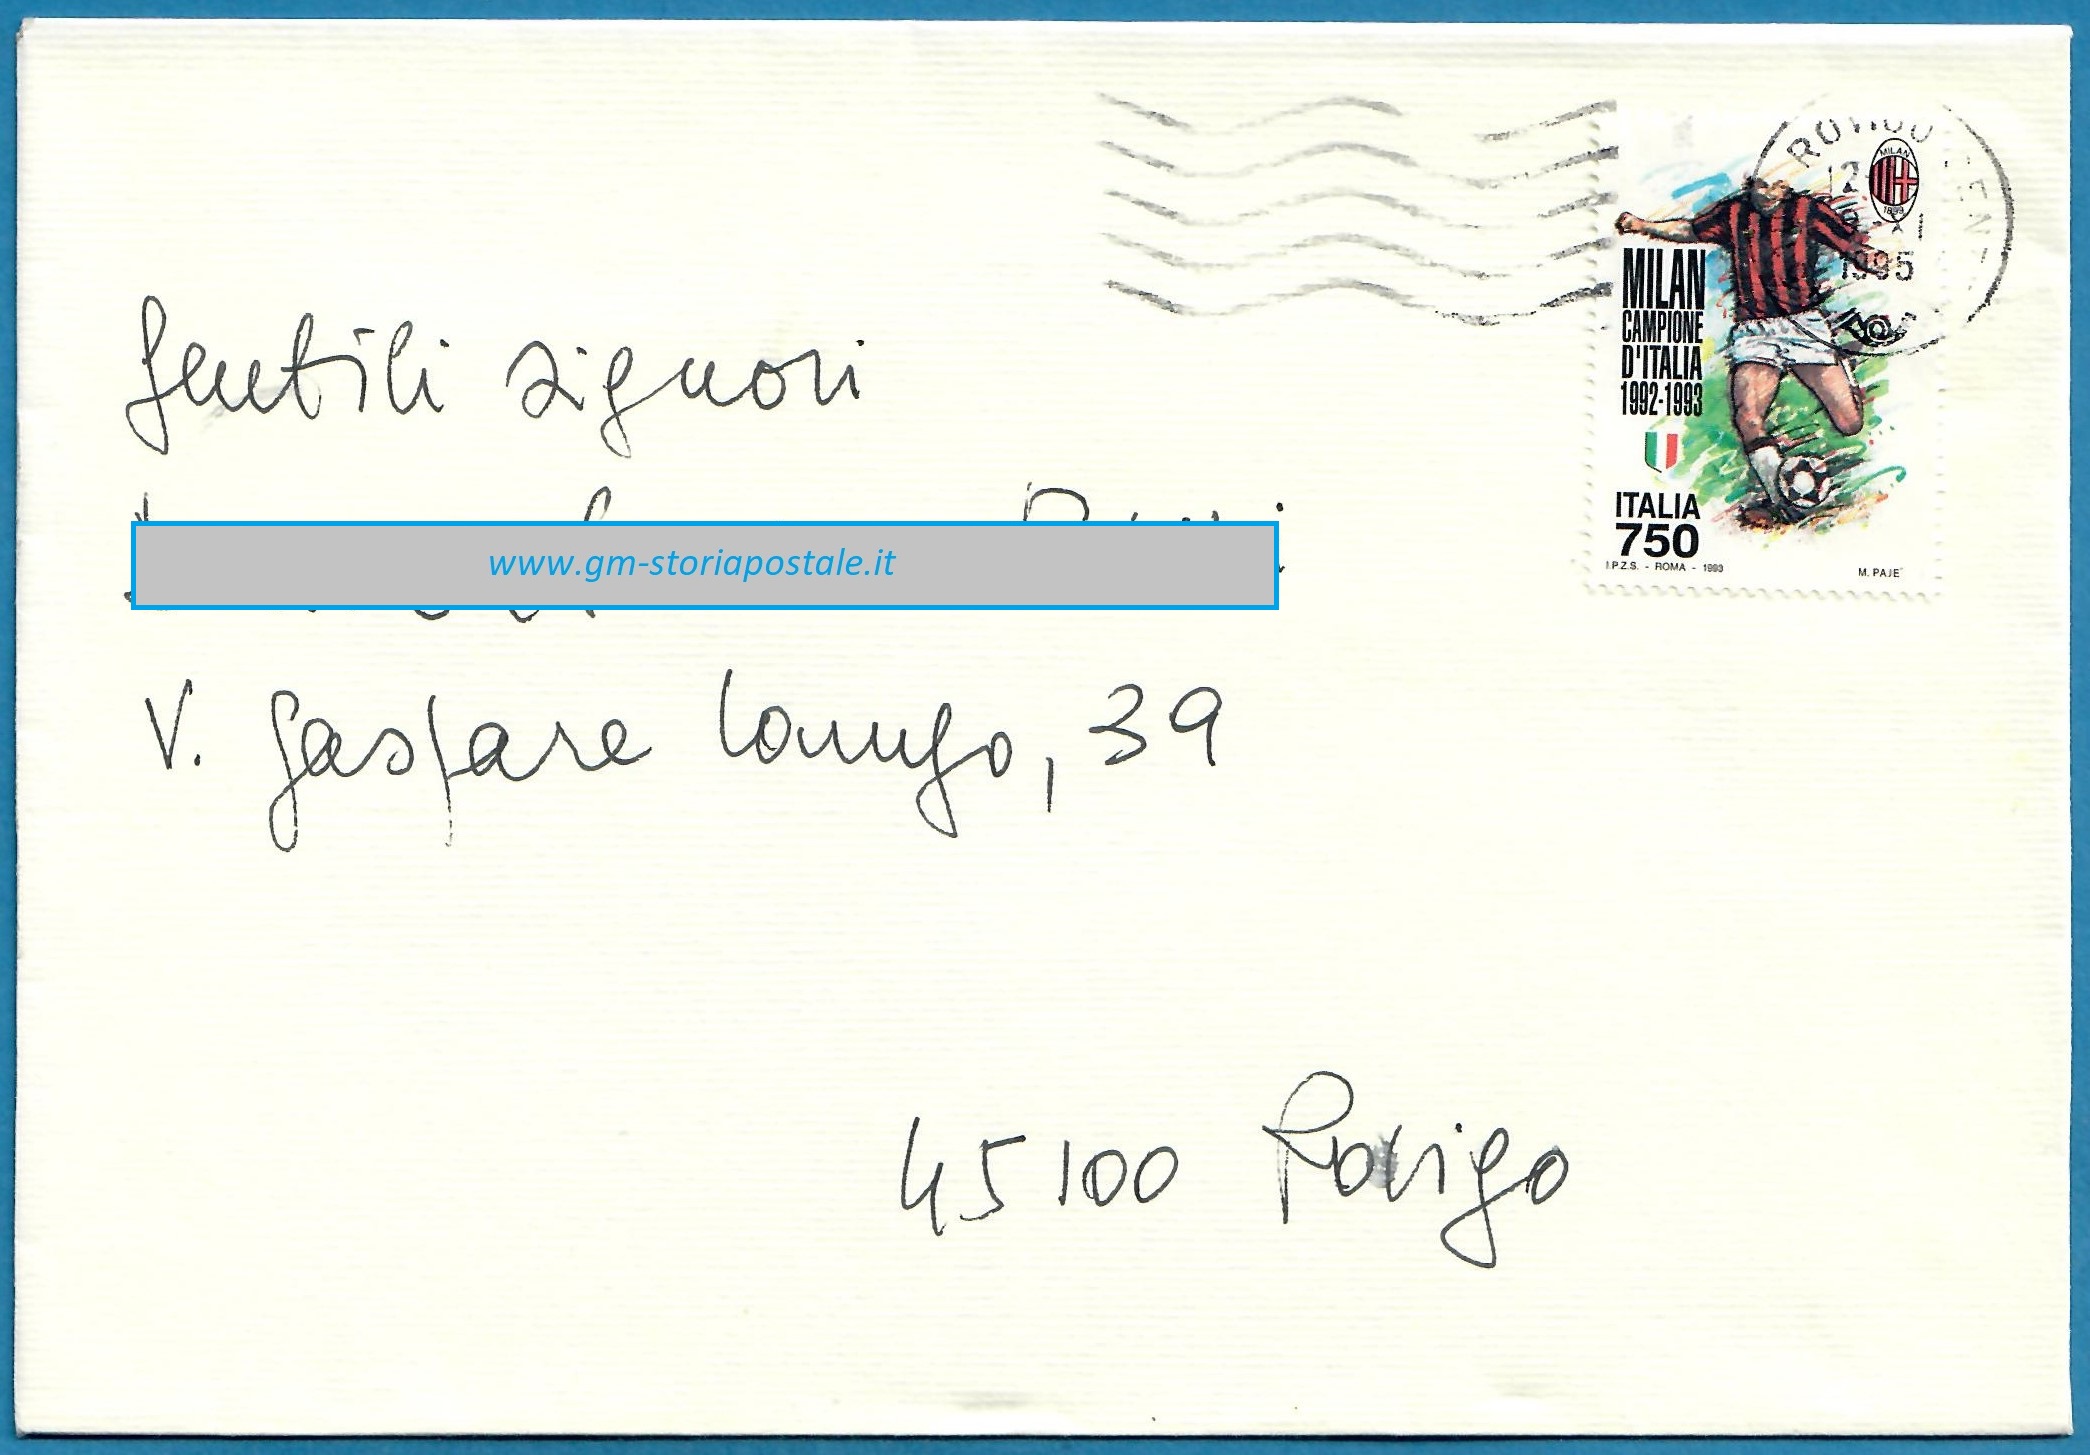 ROVIGO CEN
12
XI
1995
MILAN
1899
MILAN
CAMPIONE
D'ITALIA
1992-1993
ITALIA
750
I.P.Z.S. - ROMA - 1993
M. PAJE'
Gentili signori
www.gm-storiapostale.it
V. Gaspare Lonigo, 39
45100 Rovigo